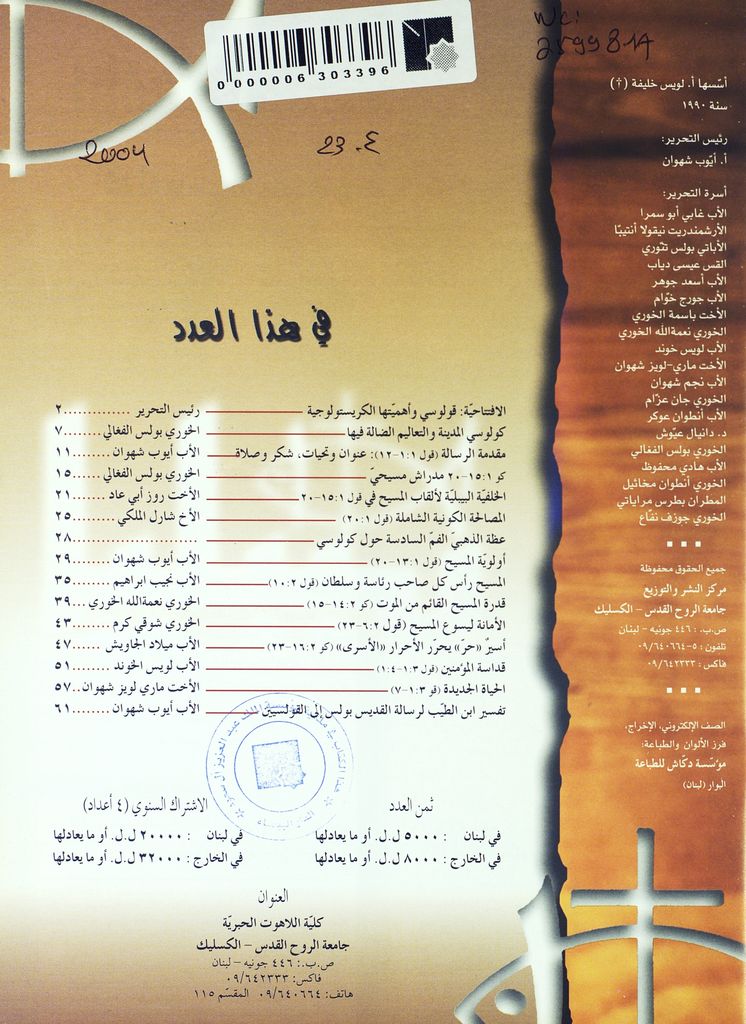 0 000006 303396
2004
23.٤
في هذا العدد
الافتتاحيّة: قولوسي وأهميّتها الكريستولوجية رئيس التحرير ..............٢
كولوسي المدينة والتعاليم الضالة فيها الخوري بولس الفغالي .......٧
مقدمة الرسالة (قول ١:١-١٢): عنوان وتحيات، شكر وصلاة الأب أيوب شهوان ........١١
كو ١٥:١-٢٠ مدراش مسيحيّ الخوري بولس الفغالي .....١٥
الخلفيّة البيبليّة لألقاب المسيح في قول ١٥:١-٢٠ الأخت روز أبي عاد ........٢١
المصالحة الكونية الشاملة (قول ٢٠:١) الأخ شارل الملكي .........٢٥
عظة الذهبيّ الفمّ السادسة حول كولوسي ........................٢٨
أولويّة المسيح (قول ١٣:١-٢٠) الأب أيوب شهوان ........٢٩
المسيح رأس كل صاحب رئاسة وسلطان (قول ١٠:٢) الأب نجيب ابراهيم .......٣٥
قدرة المسيح القائم من الموت (كو ١٤:٢-١٥) الخوري نعمةالله الخوري ...٣٩
الأمانة ليسوع المسيح (قول ٦:٢-٢٣) الخوري شوقي كرم .......٤٣
أسيرٌ «حرّ» يحرّر الأحرار «الأسرى» (كو ١٦:٢-٢٣) الأب ميلاد الجاويش ......٤٧
قداسة المؤمنين (قو ١:٣-١:٤) الأب لويس الخوند .........٥١
الحياة الجديدة (قو ١:٣-٧) الأخت ماري لويز شهوان..٥٧
تفسير ابن الطيّب لرسالة القديس بولس إلى القولسيين الأب أيوب شهوان ........٦١
ثمن العدد
في لبنان : ٥٠٠٠ ل.ل. أو ما يعادلها
في الخارج : ٨٠٠٠ ل.ل. أو ما يعادلها
الاشتراك السنوي (٤ أعداد)
في لبنان : ٢٠٠٠٠ ل.ل. أو ما يعادلها
في الخارج : ٣٢٠٠٠ ل.ل. أو ما يعادلها
العنوان
كليّة اللاهوت الحبريّة
جامعة الروح القدس – الكسليك
ص.ب.: ٤٤٦ جونيه – لبنان
فاكس: ٠٩/٦٤٢٣٣٣
هاتف: ٠٩/٦٤٠٦٦٤ المقسّم ١١٥
أسّسها أ. لويس خليفة (†)
سنة ١٩٩٠
رئيس التحرير:
أ. أيّوب شهوان
أسرة التحرير:
الأب غابي أبو سمرا
الأرشمندريت نيقولا أنتيبّا
الأباتي بولس تنّوري
القس عيسى دياب
الأب أسعد جوهر
الأب جورج خوّام
الأخت باسمة الخوري
الخوري نعمةالله الخوري
الأب لويس خوند
الأخت ماري-لويز شهوان
الأب نجم شهوان
الخوري جان عزّام
الأب أنطوان عوكر
د. دانيال عيّوش
الخوري بولس الفغالي
الأب هادي محفوظ
الخوري أنطوان مخائيل
المطران بطرس مراياتي
الخوري جوزف نفّاع
جميع الحقوق محفوظة
مركز النشر والتوزيع
جامعة الروح القدس – الكسليك
ص.ب.: ٤٤٦ جونيه – لبنان
تلفون: ٥-٠٩/٦٤٠٦٦٤
فاكس: ٠٩/٦٤٢٣٣٣
الصف الإلكتروني، الإخراج،
فرز الألوان والطباعة:
مؤسّسة دكّاش للطباعة
البوار (لبنان)